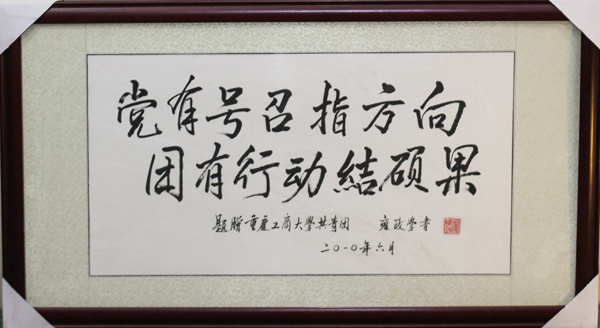 党有号召指方向
团有行动结硕果
题赠重庆工商大学共青团 雍政学书
二〇一〇年六月